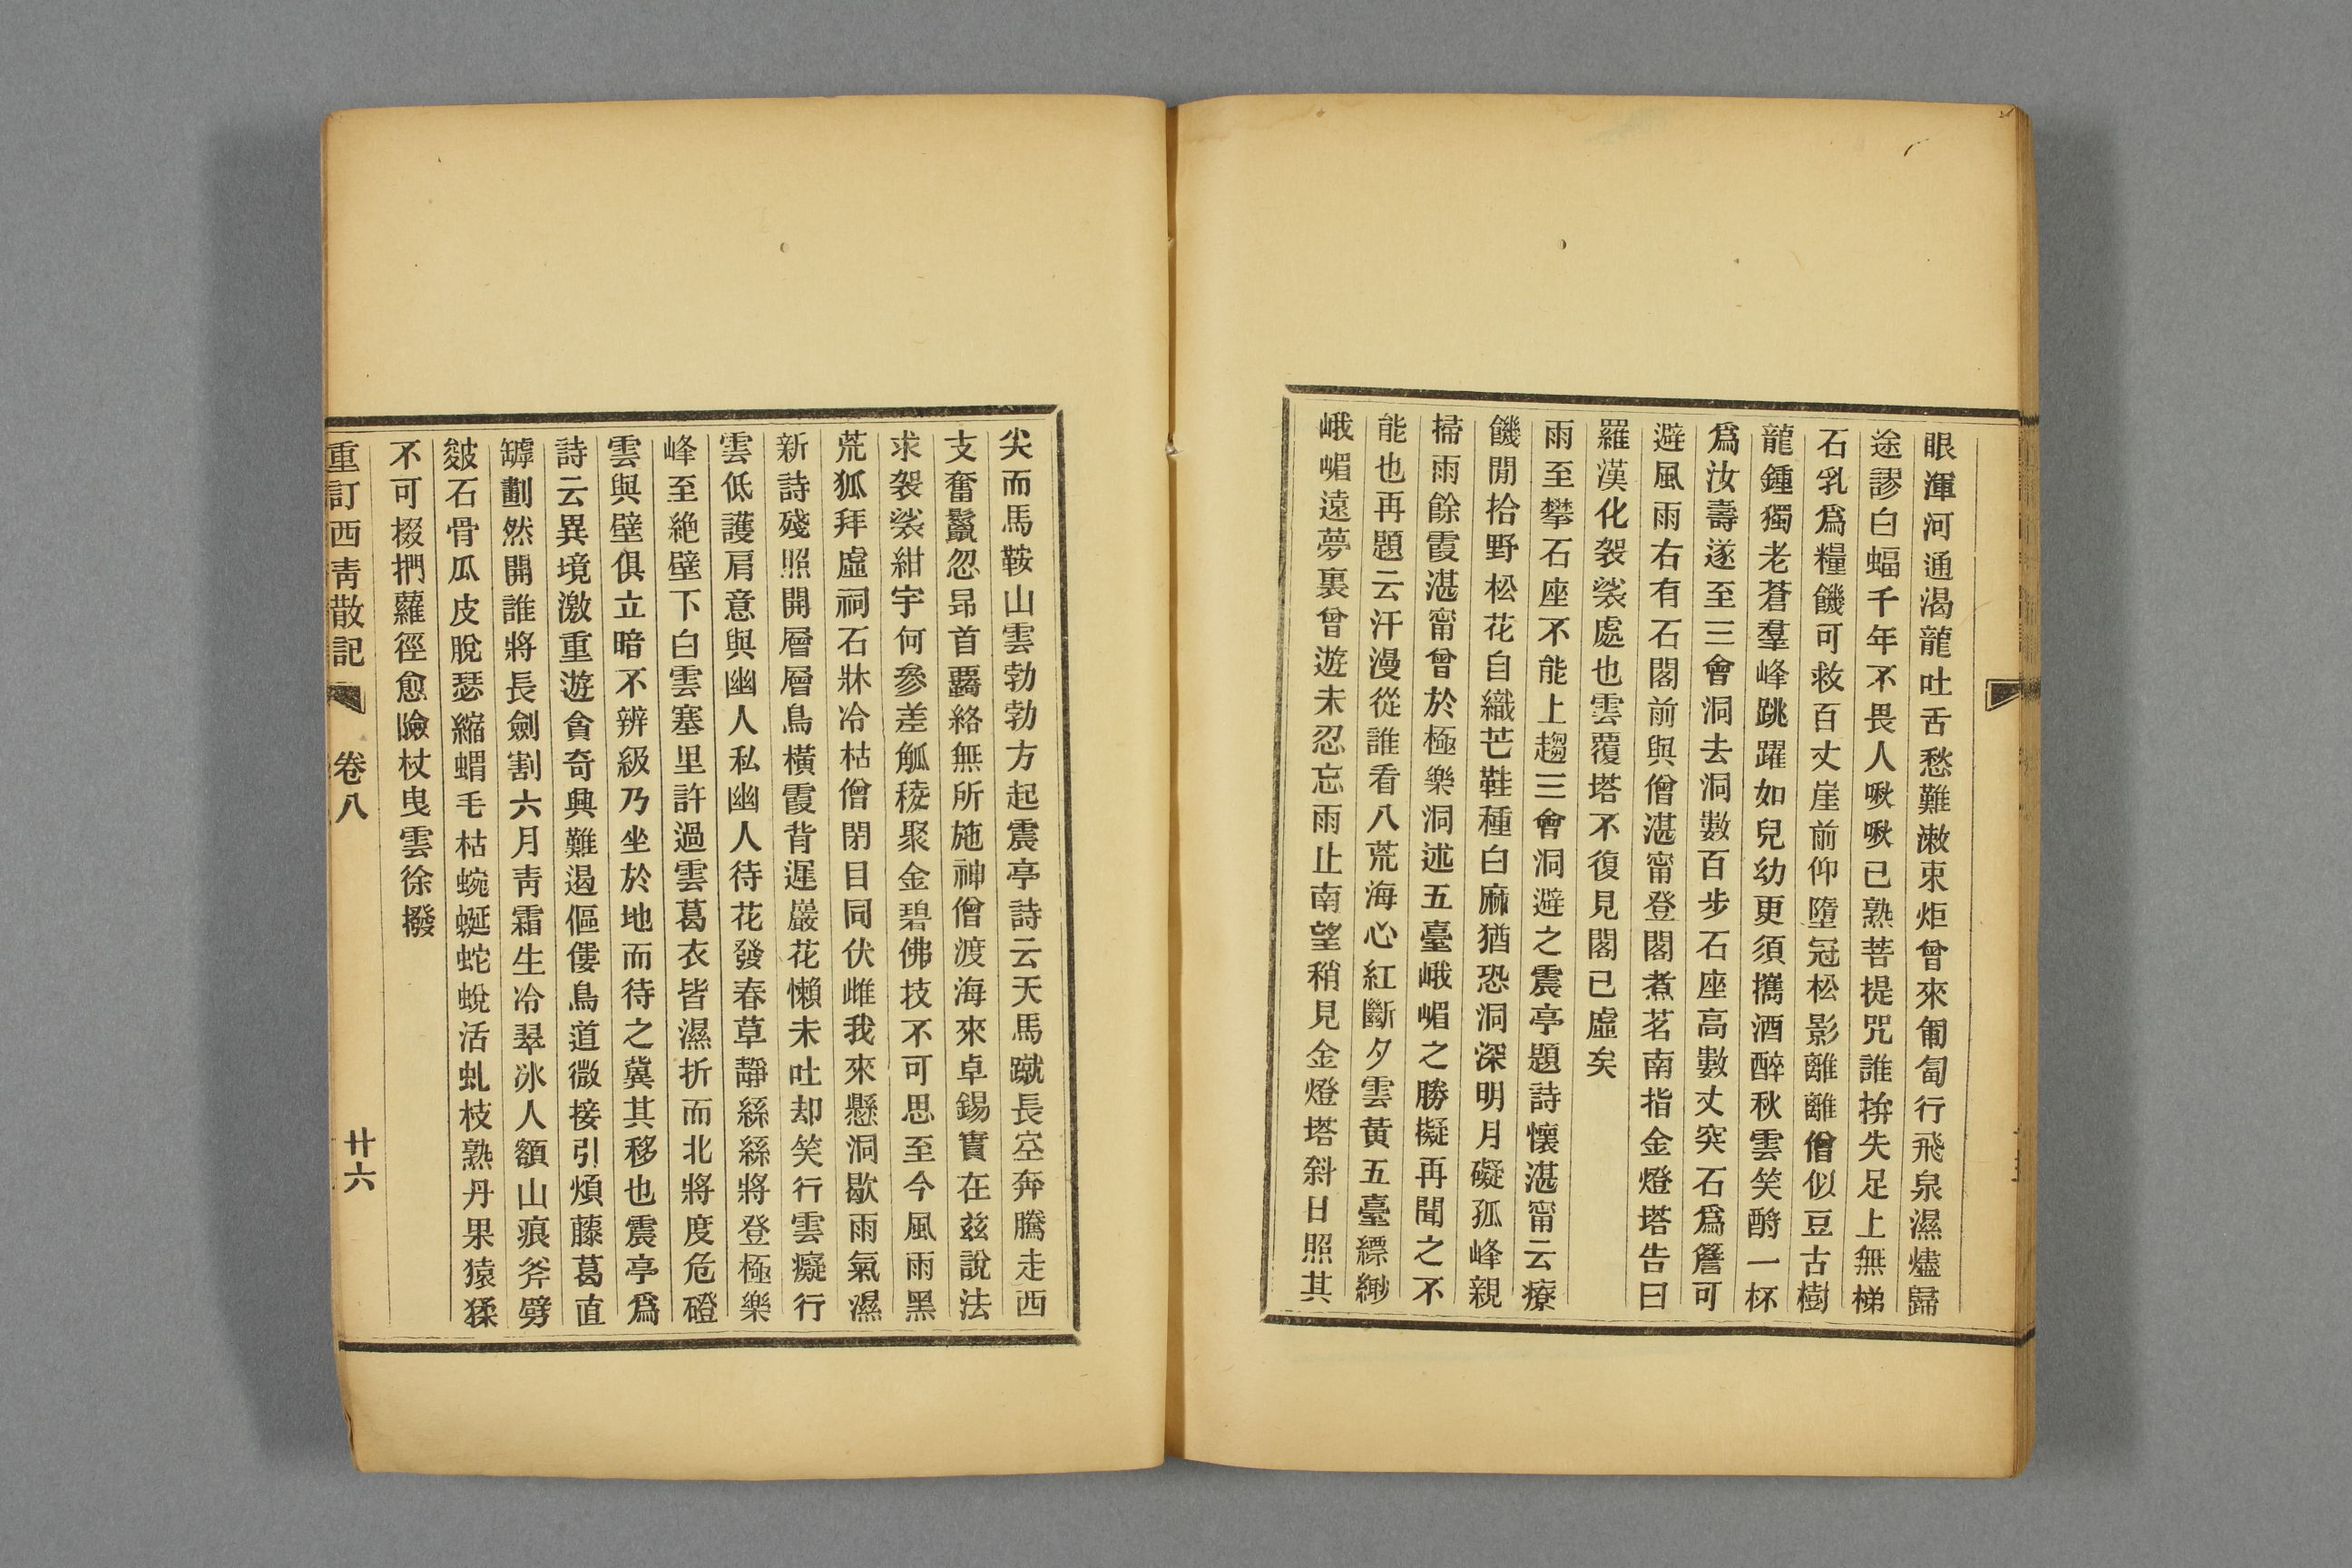 眼渾河通渴龍吐舌愁難漱束炬曾來匍匐行飛泉濕燼歸
途謬白蝠千年不畏人啾啾已熟菩提咒誰拚失足上無梯
石乳爲糧饑可救百丈崖前仰墮冠松影離離僧似豆古樹
龍鍾獨老蒼羣峰跳躍如兒幼更須攜酒醉秋雲笑酹一杯
爲汝壽遂至三會洞去洞數百步石座高數丈突石爲簷可
避風雨右有石閣前與僧湛甯登閣煮茗南指金燈塔告曰
羅漢化袈裟處也雲覆塔不復見閣已虛矣
雨至攀石座不能上趨三會洞避之震亭題詩懷湛甯云療
饑閒拾野松花自織芒鞋種白麻猶恐洞深明月礙孤峰親
掃雨餘霞湛甯曾於極樂洞述五臺峨嵋之勝擬再聞之不
能也再題云汗漫從誰看八荒海心紅斷夕雲黃五臺縹緲
峨嵋遠夢裏曾遊未忍忘雨止南望稍見金燈塔斜日照其
尖而馬鞍山雲勃勃方起震亭詩云天馬蹴長空奔騰走西
支奮鬣忽昂首羈絡無所施神僧渡海來卓錫實在茲說法
求袈裟紺宇何參差觚稜聚金碧佛技不可思至今風雨黑
荒狐拜虛祠石牀冷枯僧閉目同伏雌我來懸洞歇雨氣濕
新詩殘照開層層鳥橫霞背遲巖花懶未吐却笑行雲癡行
雲低護肩意與幽人私幽人待花發春草靜絲絲將登極樂
峰至絶壁下白雲塞里許過雲葛衣皆濕折而北將度危磴
雲與壁俱立暗不辨級乃坐於地而待之冀其移也震亭爲
詩云異境激重遊貪奇興難遏傴僂鳥道微接引煩藤葛直
罅劃然開誰將長劍割六月靑霜生冷翠冰人額山痕斧劈
皴石骨瓜皮脫瑟縮蝟毛枯蜿蜒蛇蛻活虬枝熟丹果猿猱
不可掇捫蘿徑愈險杖曳雲徐撥
重訂西靑散記 卷八 廿六